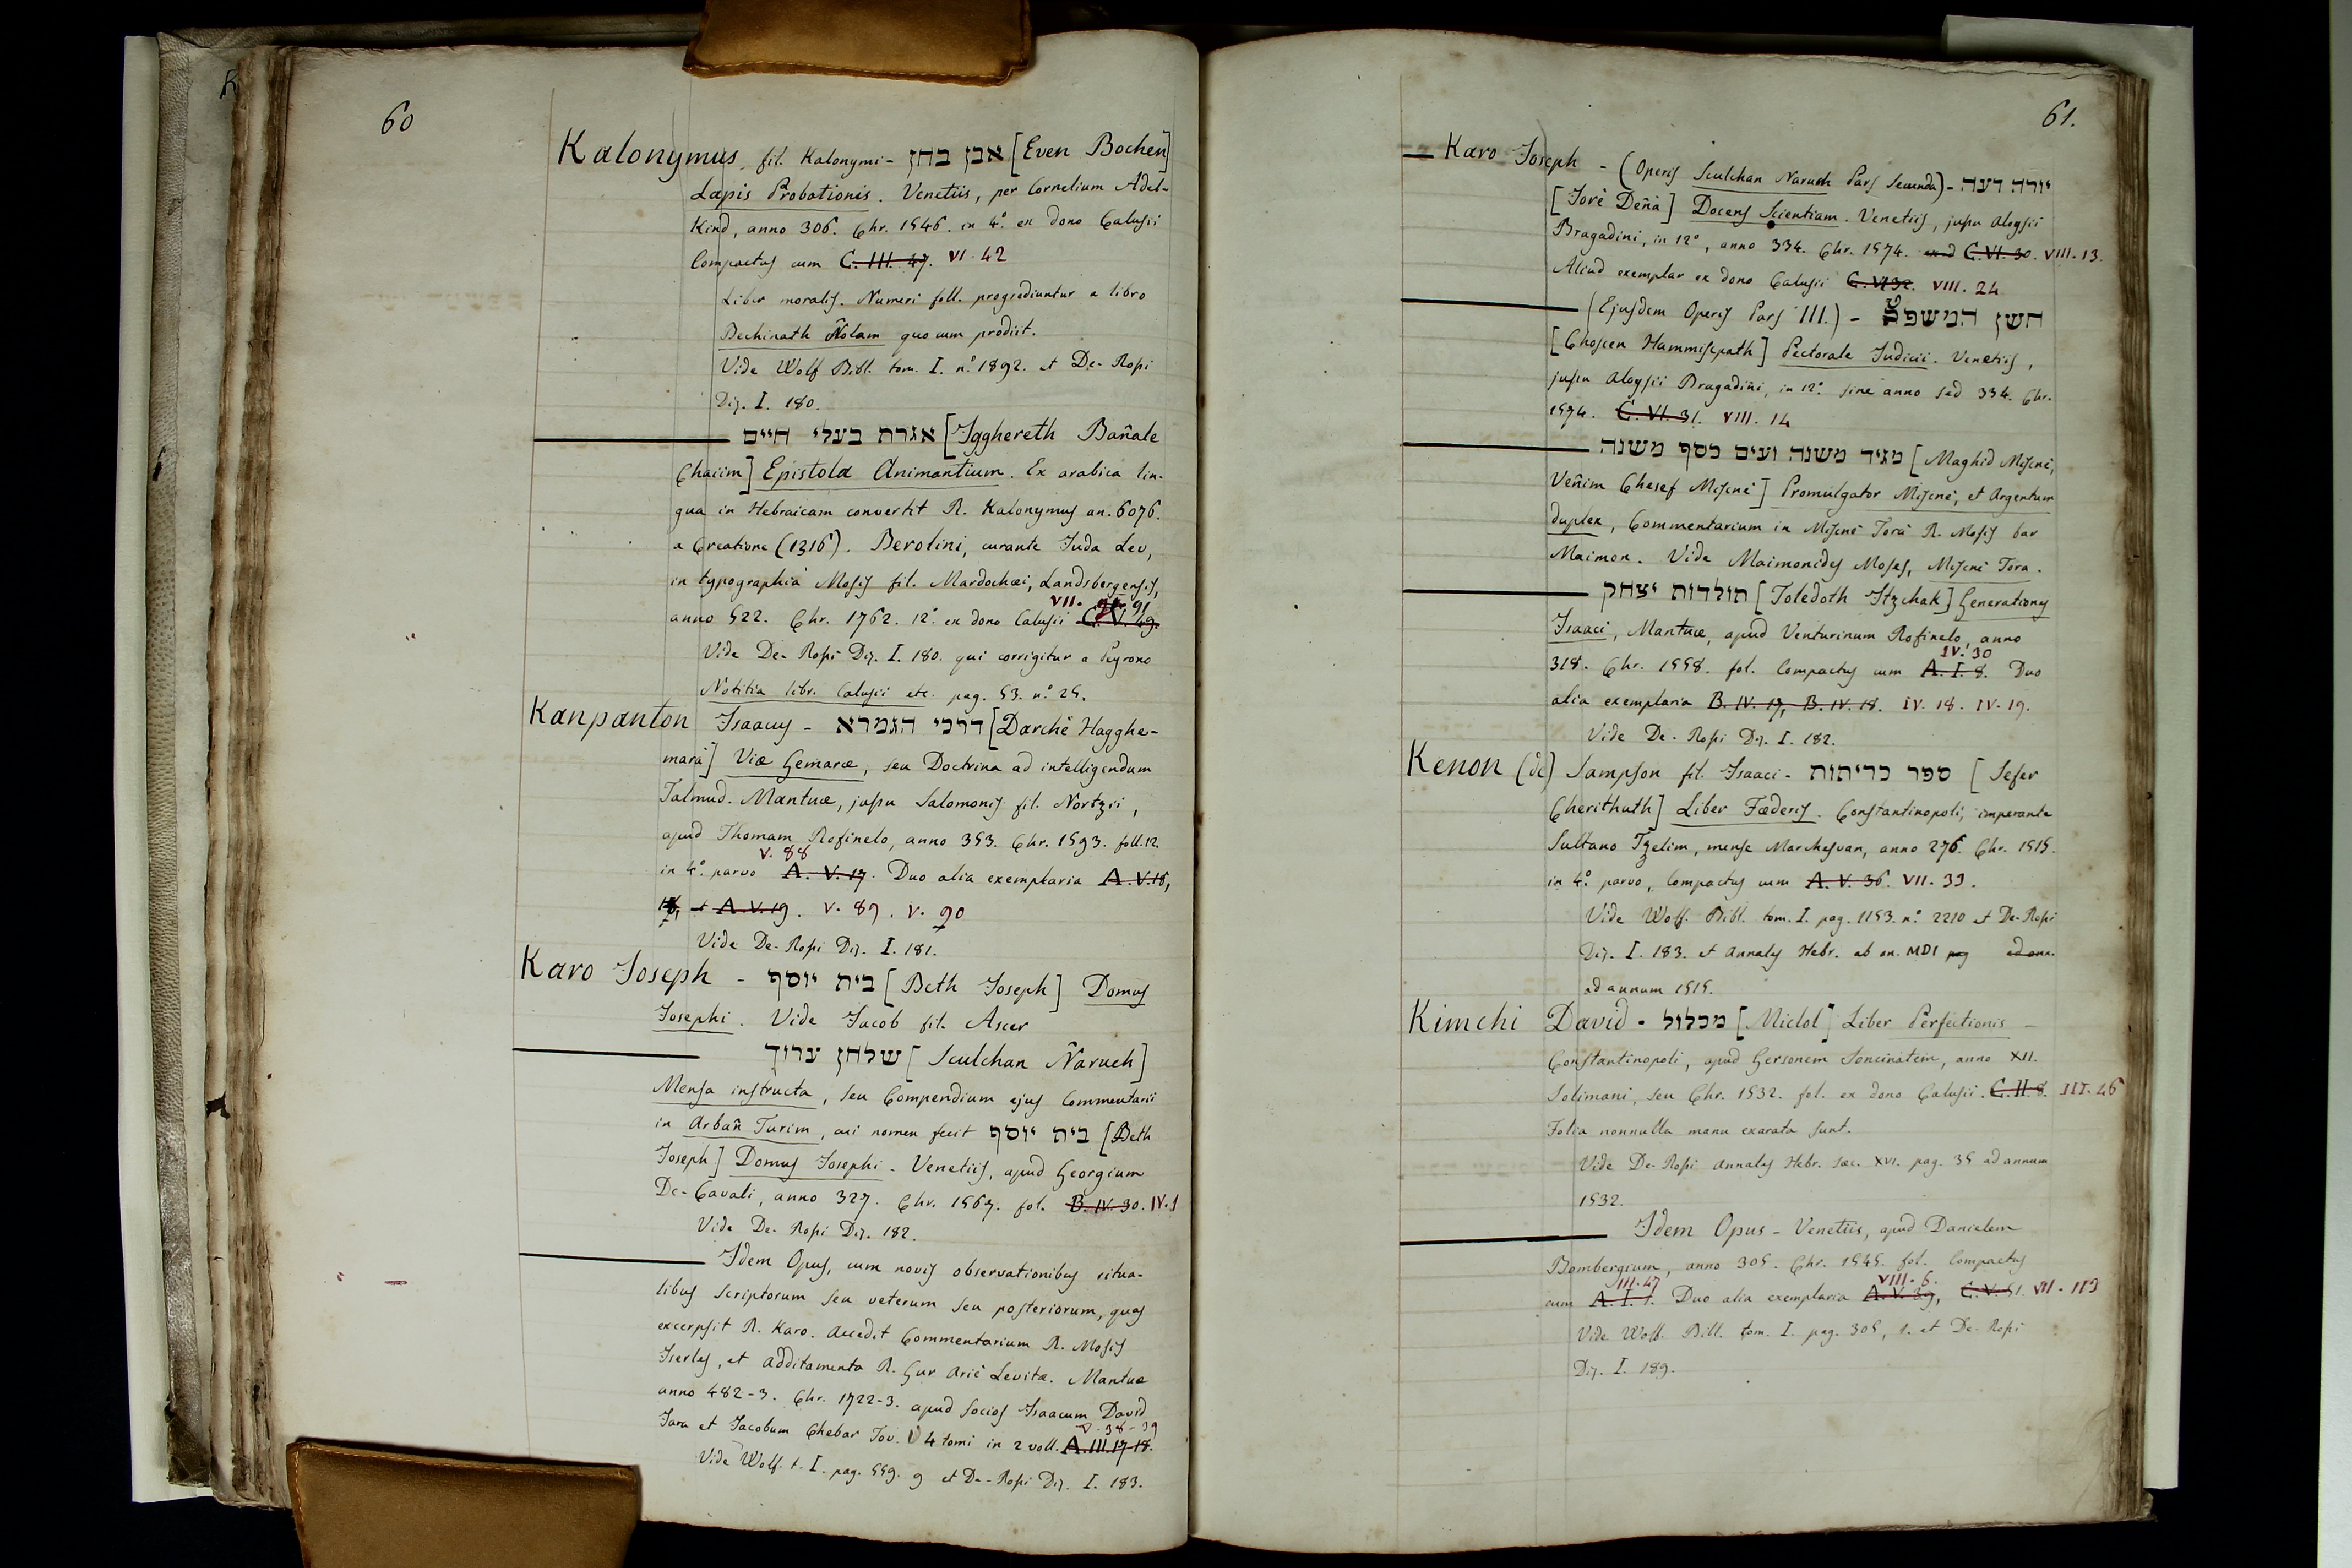 60
Kalonymus fil. Kalonymi - אבן בחן [Even Bochen]
Lapis Probationis. Venetiis, per Cornelium Adel-
Kind, anno 306. Chr. 1546. in 4.° ex dono Calusii
Compactus cum C. III. 47. VI. 42
Liber moralis. Numeri foll. progrediuntur a libro
Bechinath Ñolam quocum prodiit.
Vide Wolf Bibl. tom. I. n.° 1892. et De-Rossi
Diz. I. 180.
אגרת בעלי חיים [Igghereth Bañale
Chaiim] Epistola Animantium. Ex arabica lin-
gua in Hebraicam convertit R. Kalonymus an. 6076.
a Creatione (1316). Berolini, curante Juda Lev,
in typographia Mosis fil. Mardochæi, Landsbergensis,
VII. 91
anno 522. Chr. 1762. 12.° ex dono Calusii C. V. 49.
Vide De-Rossi Diz. I. 180. qui corrigitur a Peyrono
Notitia libr. Calusii etc. pag. 53. n.° 25.
Kanpanton Isaacus - דרכי הגמרא [Darchè Hagghe-
marà] Viæ Gemaræ, seu Doctrina ad intelligendum
Talmud. Mantuæ, jussu Salomonis fil. Nortzii,
apud Thomam Rofinelo, anno 353. Chr. 1593. foll. 12.
V. 88
in 4.° parvo A. V. 17. Duo alia exemplaria A. V. 18,
et A. V. 19. V. 89. V. 90
Vide De-Rossi Diz. I. 181.
Karo Joseph - בית יוסף [Beth Joseph] Domus
Josephi. Vide Jacob fil. Ascer
שלחן ערוך [Sculchan Ñaruch]
Mensa instructa, seu Compendium ejus Commentarii
in Arbañ Turim, cui nomen fecit בית יוסף [Beth
Joseph] Domus Josephi. Venetiis, apud Georgium
De-Cavali, anno 327. Chr. 1567. fol. B. IV. 30. IV. 1
Vide De-Rossi Diz. 182.
Idem Opus, cum novis observationibus ritua-
libus scriptorum seu veterum seu posteriorum, quas
excerpsit R. Karo. Accedit Commentarium R. Mosis
Iserles, et additamenta R. Gur Ariè Levitæ. Mantuæ
anno 482-3. Chr. 1722-3. apud socios Isaacum David
V. 38-39
Jara et Jacobum Chebar Tov. 4 tomi in 2 voll. A. III. 17-18.
Vide Wolf. t. I. pag. 559. 9 et De-Rossi Diz. I. 183.
61.
Karo Joseph - (Operis Sculchan Naruch Pars Secunda) - יורה דעה
[Jorè Deñà] Docens Scientiam. Venetiis, jussu Aloysii
Bragadini, in 12°, anno 334. Chr. 1574. C. VI. 30. VIII. 13.
Aliud exemplar ex dono Calusii C. VI 32. VIII. 24
(Ejusdem Operis Pars III.) - חשן המשפט
[Choscen Hammiscpath] Pectorale Judicii. Venetiis,
jussu Aloysii Bragadini, in 12.° sine anno sed 334. Chr.
1574. C. VI. 31. VIII. 14
מגיד משנה ועים כסף משנה [Maghid Miscnè,
Veñim Chesef Miscnè] Promulgator Miscnè, et Argentum
duplex, Commentarium in Miscnè Torà R. Mosis bar
Maimon. Vide Maimonides Moses, Miscnè Tora.
תולדות יצחק [Toledoth Itzchak] Generationes
Isaaci, Mantuæ, apud Venturinum Rofinelo, anno
IV. 30
318. Chr. 1558. fol. Compactus cum A. I. 8. Duo
alia exemplaria B. IV. 17, B. IV. 18. IV. 18. IV. 19.
Vide De-Rossi Diz. I. 182.
Kenon (de) Sampson fil. Isaaci - ספר כריתות [Sefer
Cherithuth] Liber Fœderis. Constantinopoli, imperante
Sultano Tzelim, mense Marchesvan, anno 276. Chr. 1515.
in 4.° parvo, Compactus cum A. V. 36. VII. 33.
Vide Wolf. Bibl. tom. I. pag. 1153. n.° 2210 et De-Rossi
Diz. I. 183. et Annales Hebr. ab an. MDI pag ad ann.
ad annum 1515.
Kimchi David - מכלול [Miclol] Liber Perfectionis -
Constantinopoli, apud Gersonem Soncinatem, anno XII.
Solimani, seu Chr. 1532. fol. ex dono Calusii. C. II. 8. III. 46
Folia nonnulla manu exarata sunt.
Vide De-Rossi Annales Hebr. sæc. XVI. pag. 35 ad annum
1532.
Idem Opus - Venetiis, apud Danielem
Bombergium, anno 305. Chr. 1545. fol. Compactus
III. 47 VIII. 6.
cum A. I. 1. Duo alia exemplaria A. V. 39, C. V. 51. VII. 113
Vide Wolf. Bibl. tom. I. pag. 305, 1. et De-Rossi
Diz. I. 189.